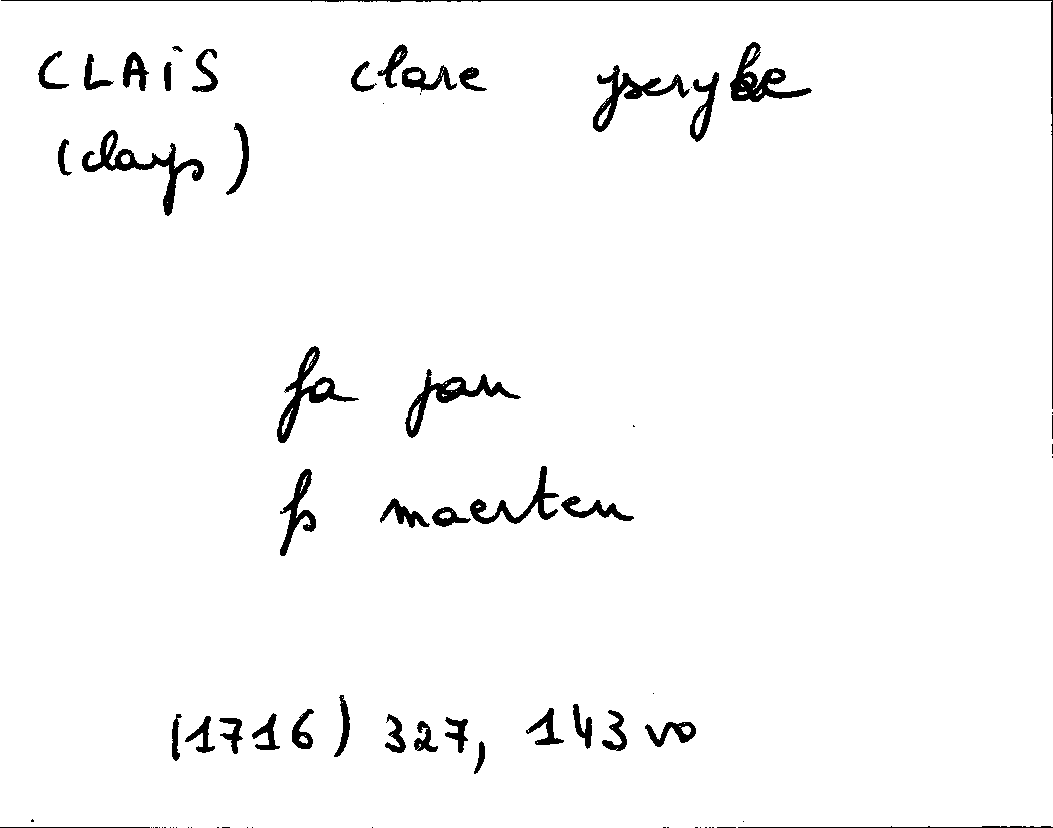 CLAIS clare yserghe
(clays)
fa jan
fs maerten
(1716) 327, 143 vo